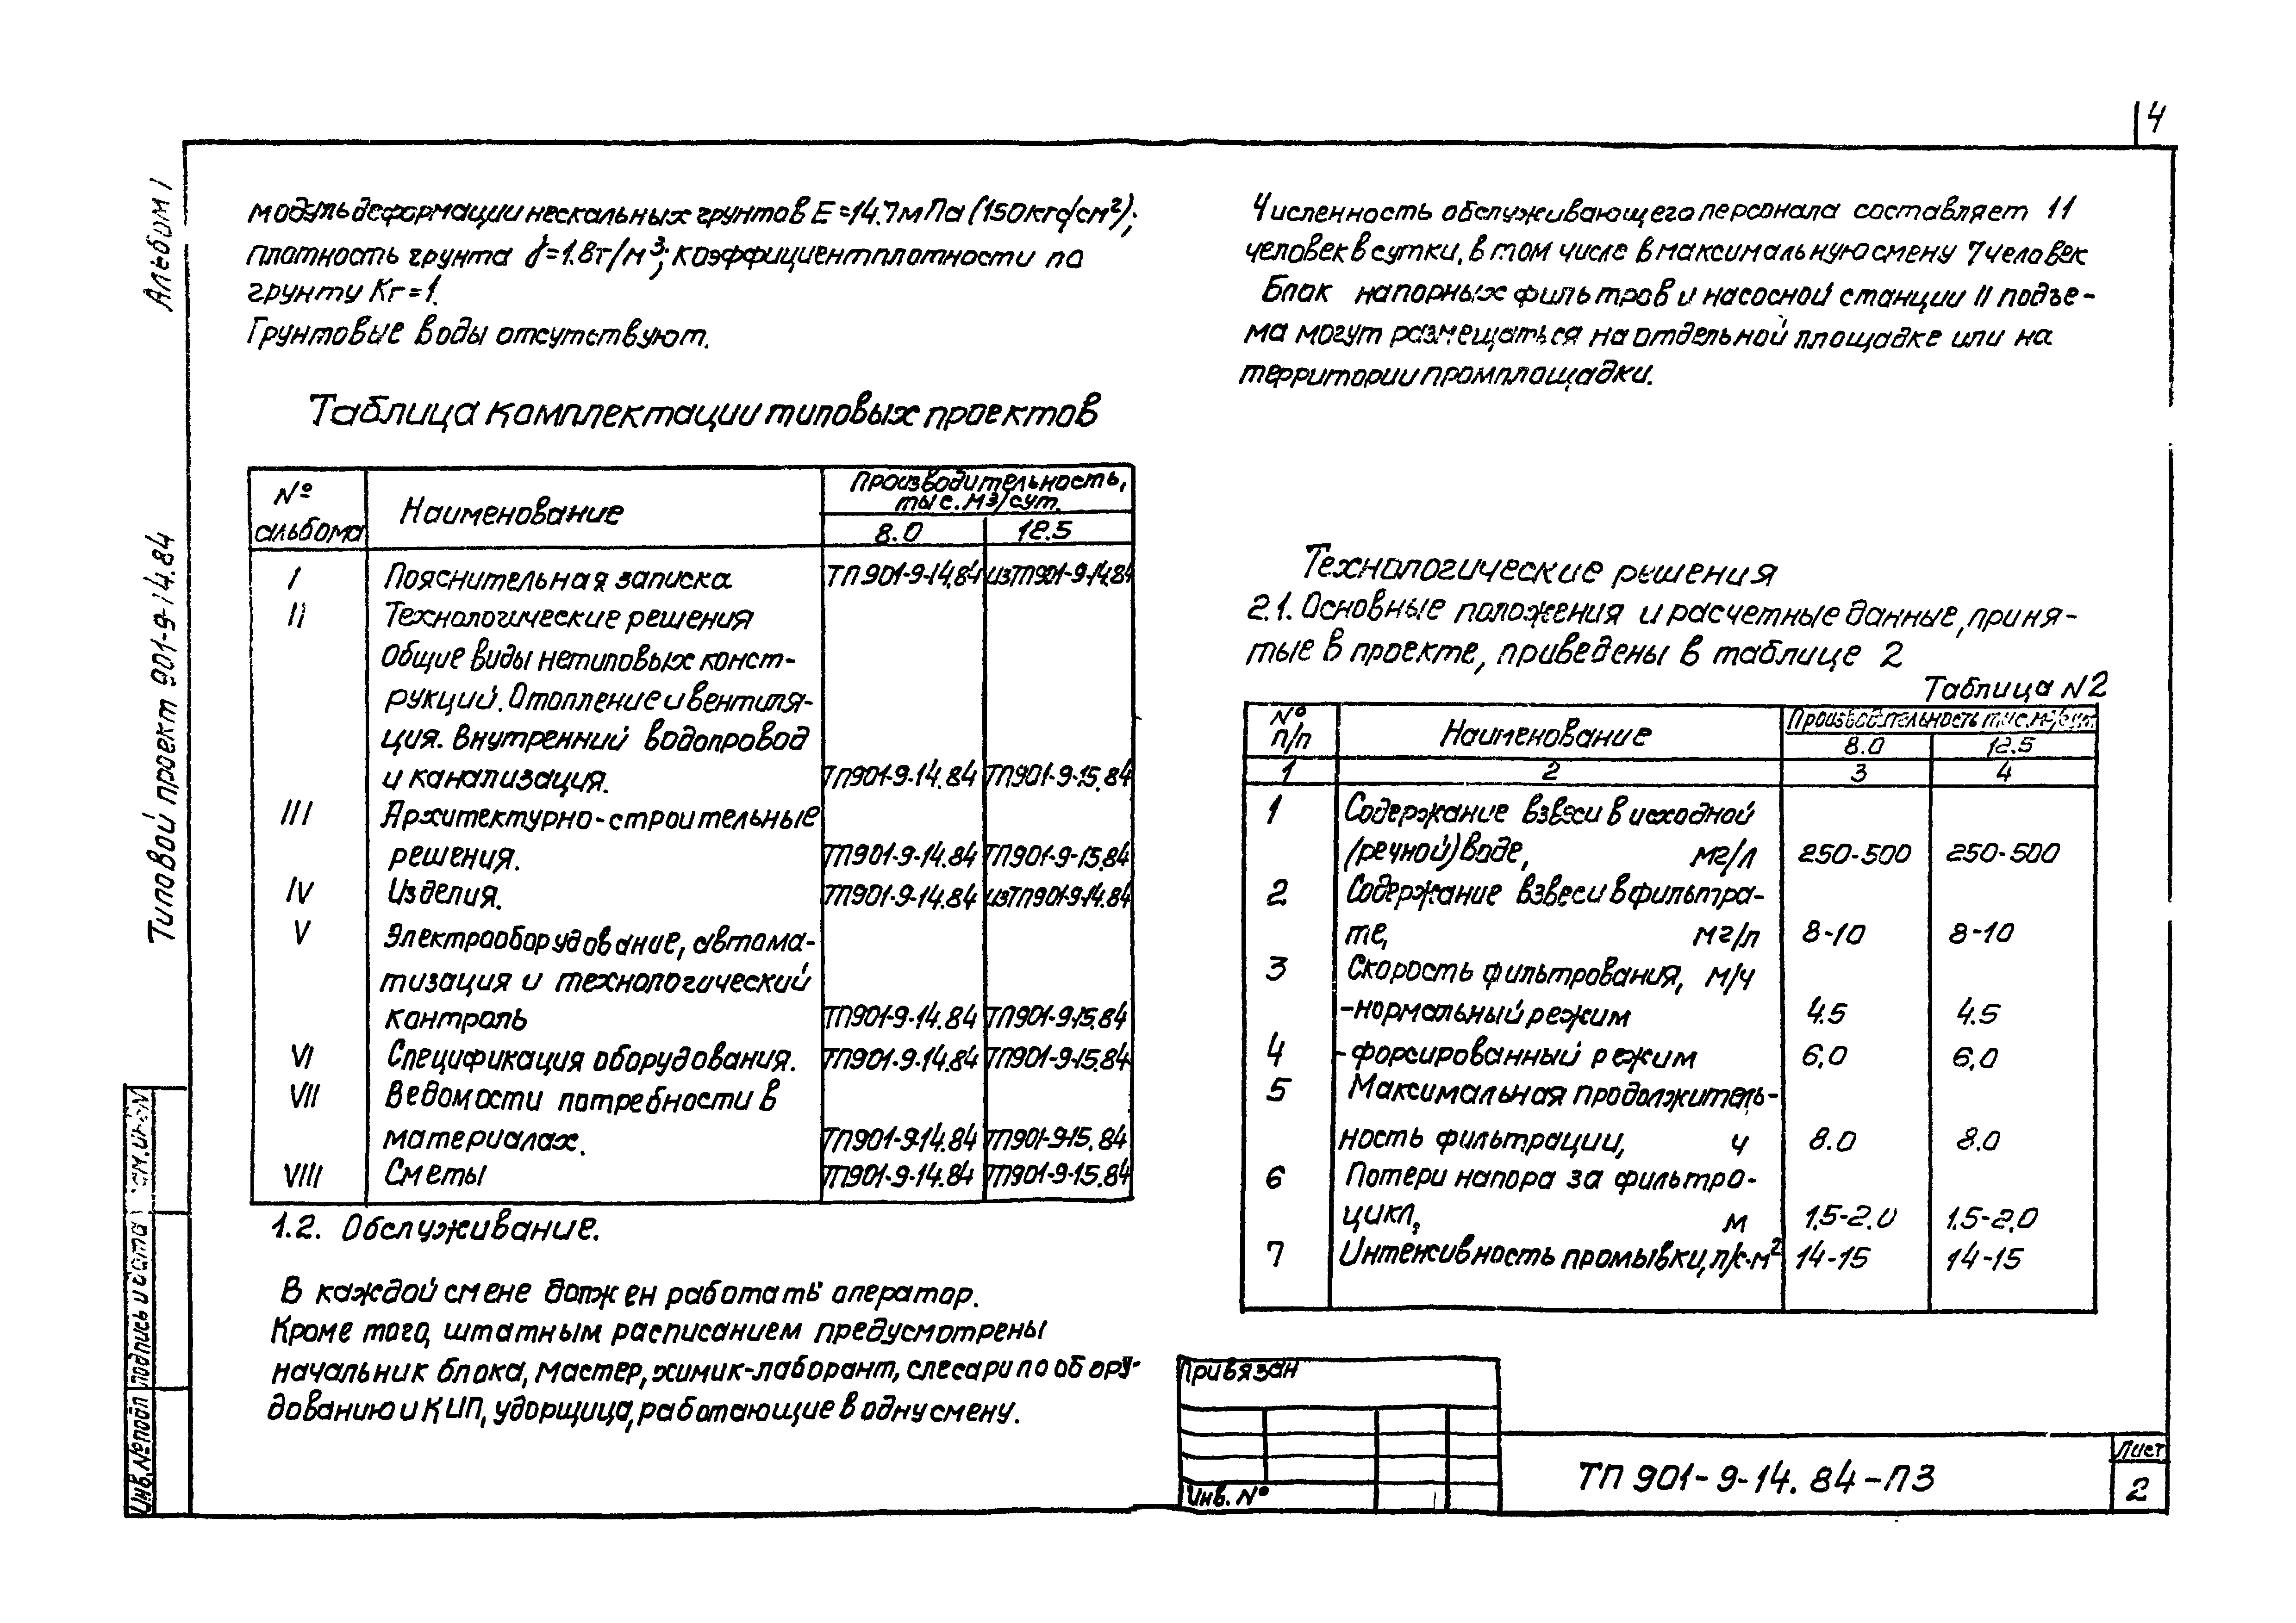 4
Альбом I
Типовой проект 901-9-14.84
модуль деформации нескальных грунтов Е=14.7мПа (150кгс/см²);
плотность грунта γ=1.8т/м³; коэффициент плотности по
грунту Кг=1.
Грунтовые воды отсутствуют.
Таблица комплектации типовых проектов
№ альбома Наименование Производительность, тыс. м3/сут.
8.0 12.5
I Пояснительная записка ТП901-9-14.84 изТП901-9-14.84
II Технологические решения
Общие виды нетиповых конст-
рукций. Отопление и вентиля-
ция. Внутренний водопровод
и канализация. ТП901-9-14.84 ТП901-9-15.84
III Архитектурно-строительные
решения. ТП901-9-14.84 ТП901-9-15.84
IV Изделия. ТП901-9-14.84 изТП901-9-14.84
V Электрооборудование, автома-
тизация и технологический
контроль ТП901-9-14.84 ТП901-9-15.84
VI Спецификация оборудования. ТП901-9-14.84 ТП901-9-15.84
VII Ведомости потребности в
материалах. ТП901-9-14.84 ТП901-9-15.84
VIII Сметы ТП901-9-14.84 ТП901-9-15.84
1.2. Обслуживание.
В каждой смене должен работать оператор.
Кроме того, штатным расписанием предусмотрены
начальник блока, мастер, химик-лаборант, слесари по обору-
дованию и КИП, уборщица, работающие в одну смену.
Численность обслуживающего персонала составляет 11
человек в сутки, в том числе в максимальную смену 7 человек
Блок напорных фильтров и насосной станции II подъе-
ма могут размещаться на отдельной площадке или на
территории промплощадки.
Технологические решения
2.1. Основные положения и расчетные данные, приня-
тые в проекте, приведены в таблице 2
Таблица N2
№ п/п Наименование Производительность тыс.м³/сут.
8.0 12.5
1 2 3 4
1 Содержание взвеси в исходной
(речной) воде, мг/л 250-500 250-500
2 Содержание взвеси в фильтра-
те, мг/л 8-10 8-10
3 Скорость фильтрования, м/ч
-нормальный режим 4.5 4.5
4 -форсированный режим 6,0 6,0
5 Максимальная продолжитель-
ность фильтрации, ч 8.0 8.0
6 Потери напора за фильтро-
цикл, м 1,5-2.0 1.5-2,0
7 Интенсивность промывки, л/с·м² 14-15 14-15
Привязан
Инв. №
ТП 901-9-14.84-ПЗ
Лист
2
Инв. № подл
подпись и дата